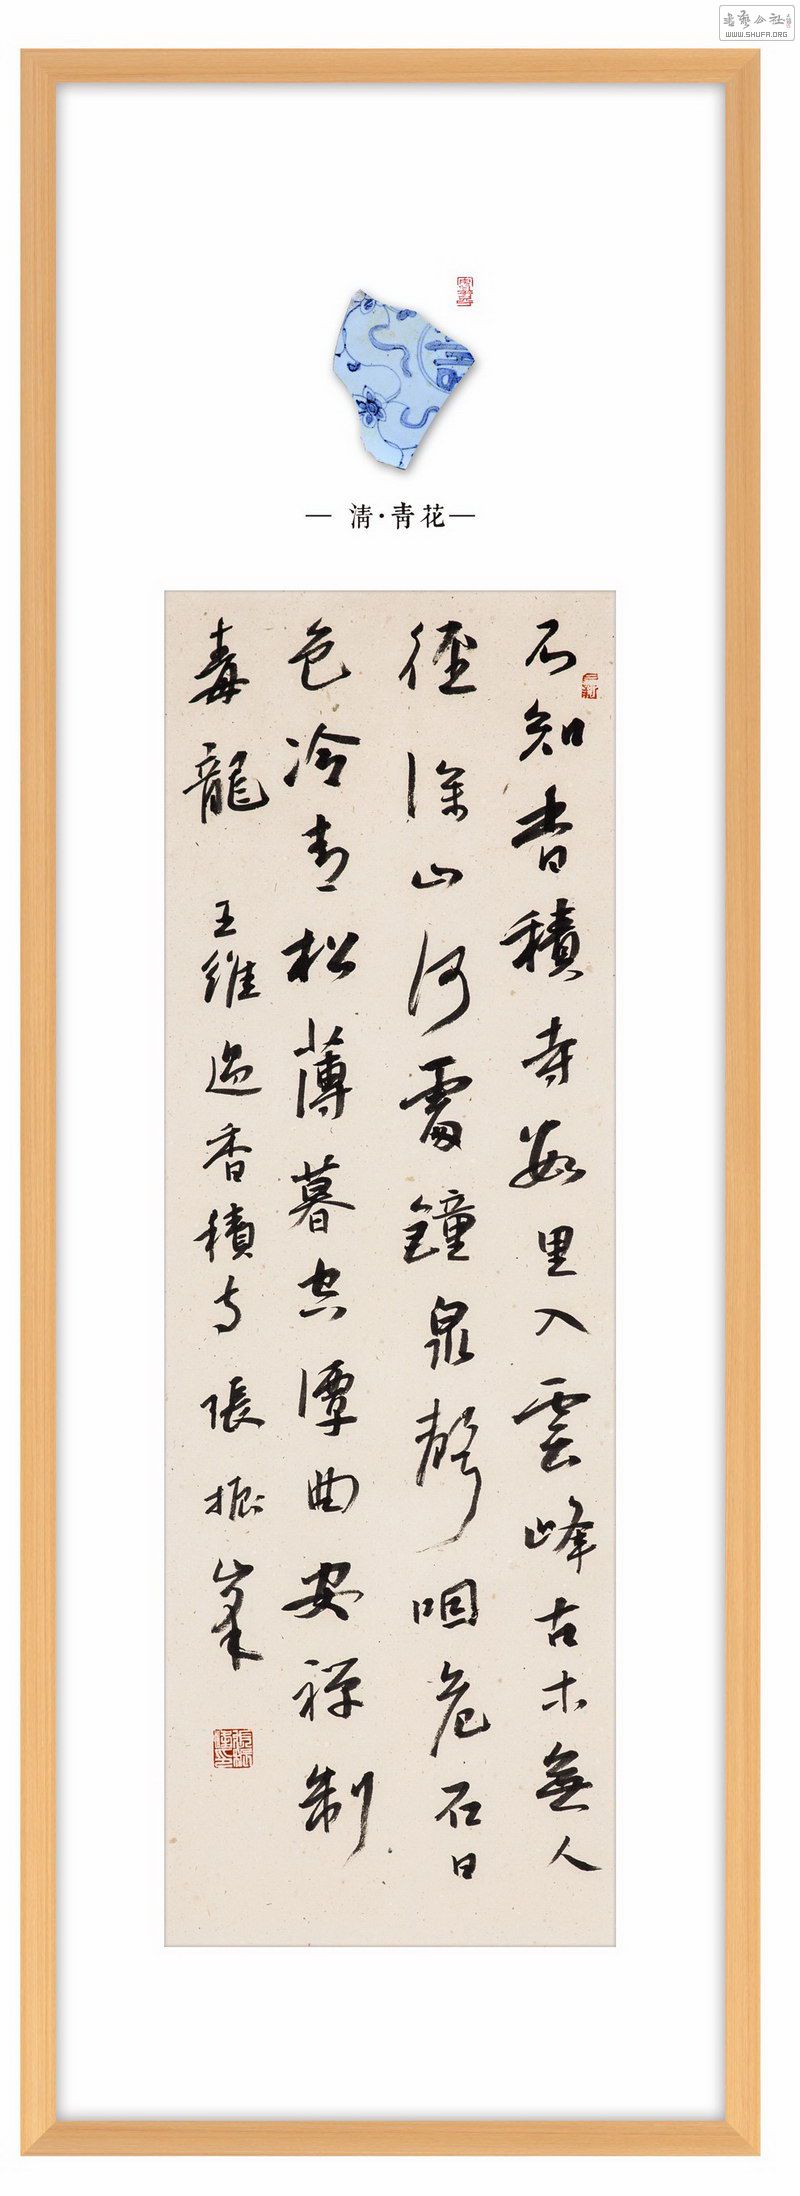 书艺公社
WWW.SHUFA.ORG
— 清·青花—
不知香積寺數里入雲峰古木無人
徑深山何處鐘泉聲咽危石日
色冷青松薄暮空潭曲安禪制
毒龍 王維過香積寺 張振峯